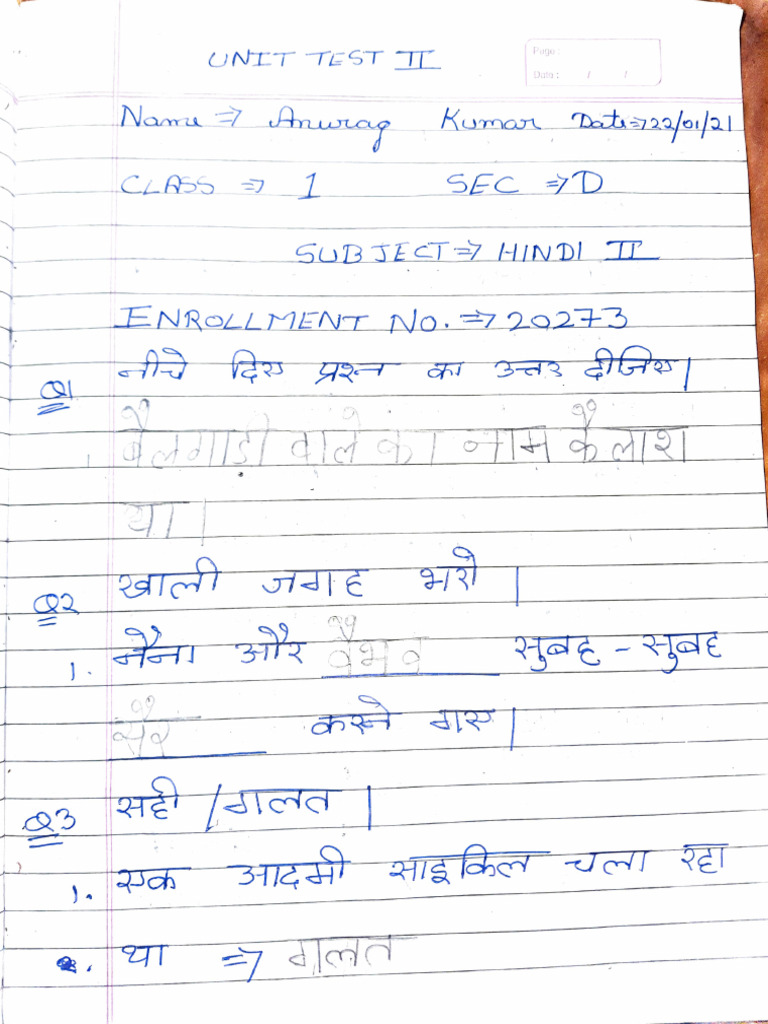 UNIT TEST II
Page :
Date : / /
Name ⇒ Anurag Kumar Date ⇒ 22/01/21
CLASS ⇒ 1 SEC ⇒ D
SUBJECT ⇒ HINDI II
ENROLLMENT NO. ⇒ 20273
Q1 नीचे दिए प्रश्न का उत्तर दीजिए।
बैलगाड़ी वाले का नाम कैलाश
था।
Q2 खाली जगह भरो।
1. नैना और वैभव सुबह - सुबह
सैर करने गए।
Q3 सही / गलत।
1. एक आदमी साइकिल चला रहा
था ⇒ गलत